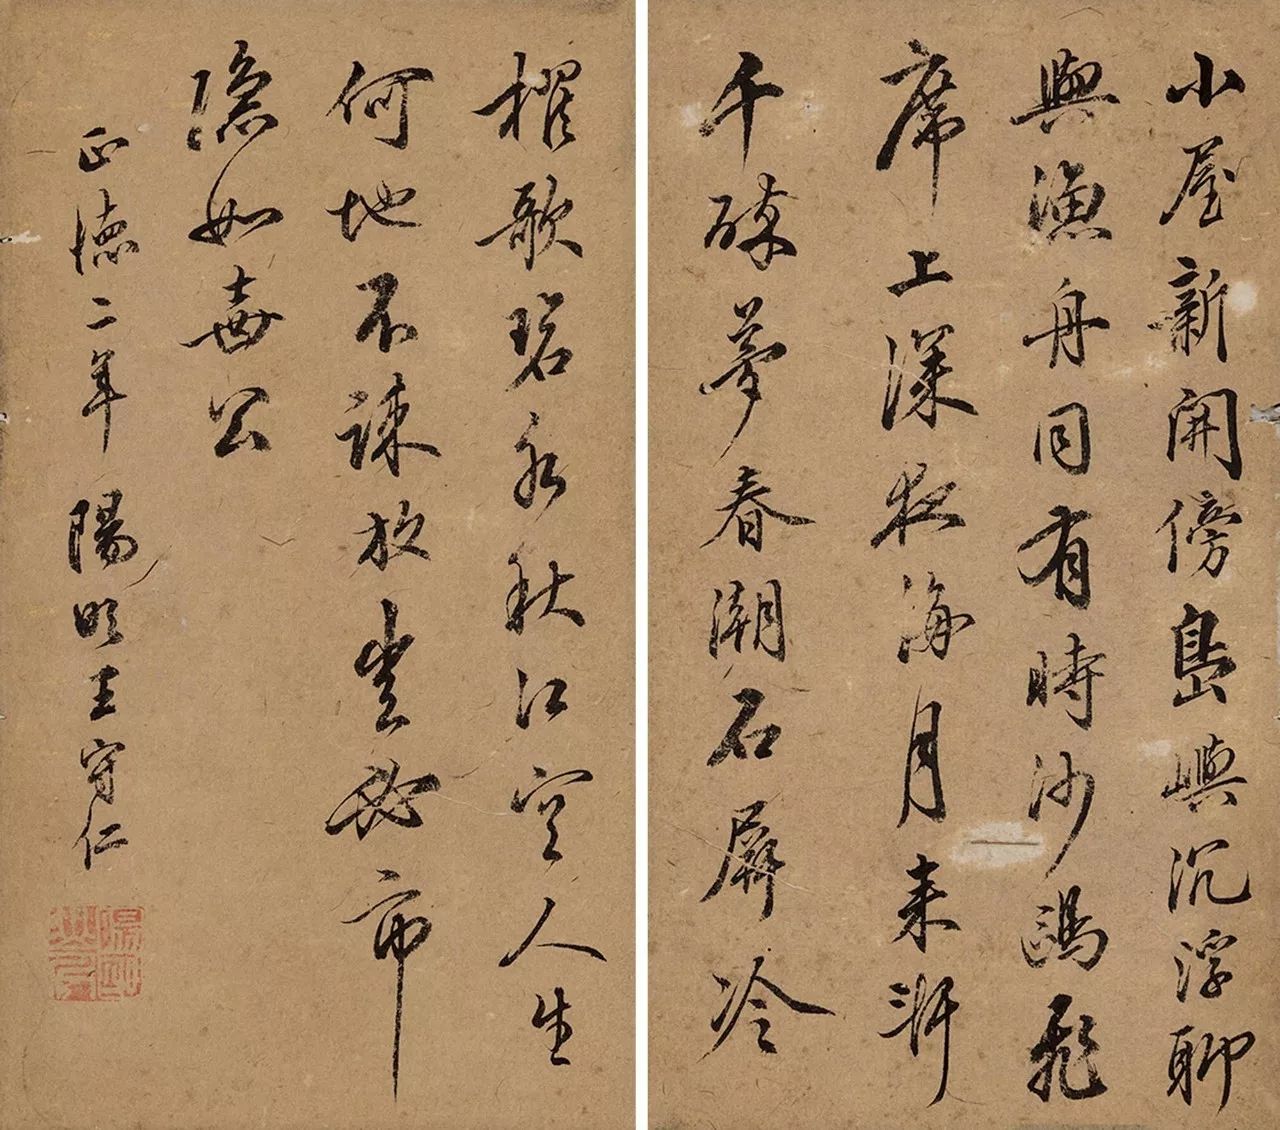 小屋新開傍島嶼沉浮聊
與漁舟同有時沙鷗飛
席上深夜海月來軒
中醉夢春潮石屏冷
櫂歌碧水秋江空人生
何地不疎放豈必市
隱如壺公
正德二年陽明王守仁
陽明山人